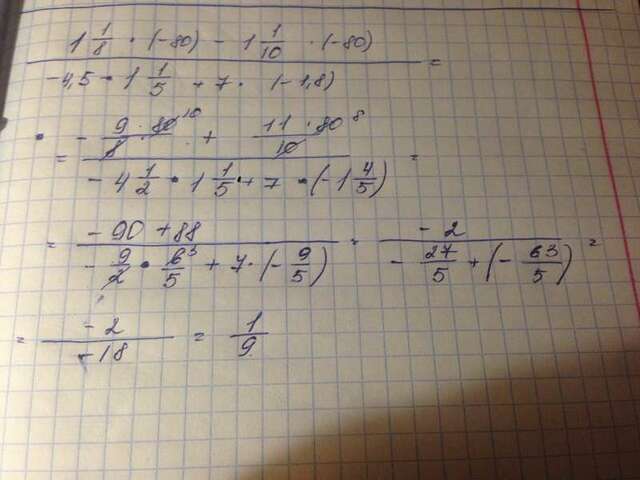 1 1/8 · (-80) - 1 1/10 · (-80)
-4,5 · 1 1/5 + 7 · (-1,8) =
= - 9 · 80 10 / 8 + 11 · 80 8 / 10
- 4 1/2 · 1 1/5 + 7 · (-1 4/5) =
= -90 + 88 = -2
- 9/2 · 6 3/5 + 7 · (- 9/5) - 27/5 + (- 63/5) =
= -2 / -18 = 1/9